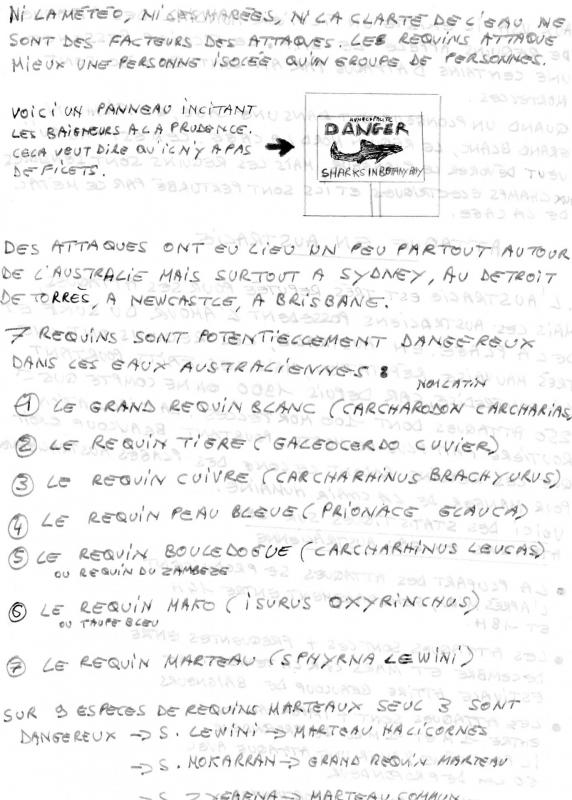 NI LA MÉTÉO, NI LES MARÉES, NI LA CLARTÉ DE L'EAU NE
SONT DES FACTEURS DES ATTAQUES. LES REQUINS ATTAQUE
MIEUX UNE PERSONNE ISOLÉE QU'UN GROUPE DE PERSONNES.
VOICI UN PANNEAU INCITANT
LES BAIGNEURS A LA PRUDENCE.
CELA VEUT DIRE QU'IL N'Y A PAS
DE FILETS.
DANGER
SHARKS IN BOTANY BAY
DES ATTAQUES ONT EU LIEU UN PEU PARTOUT AUTOUR
DE L'AUSTRALIE MAIS SURTOUT A SYDNEY, AU DETROIT
DE TORRES, A NEWCASTLE, A BRISBANE.
7 REQUINS SONT POTENTIELLEMENT DANGEREUX
DANS LES EAUX AUSTRALIENNES :
NOM LATIN
① LE GRAND REQUIN BLANC (CARCHARODON CARCHARIAS)
② LE REQUIN TIGRE (GALEOCERDO CUVIER)
③ LE REQUIN CUIVRE (CARCHARHINUS BRACHYURUS)
④ LE REQUIN PEAU BLEUE (PRIONACE GLAUCA)
⑤ LE REQUIN BOULEDOGUE (CARCHARHINUS LEUCAS)
OU REQUIN DU ZAMBEZE
⑥ LE REQUIN MAKO (ISURUS OXYRINCHUS)
OU TAUPE BLEU
⑦ LE REQUIN MARTEAU (SPHYRNA LEWINI)
SUR 9 ESPECES DE REQUINS MARTEAUX SEUL 3 SONT
DANGEREUX -> S. LEWINI -> MARTEAU HALICORNES
-> S. MOKARRAN -> GRAND REQUIN MARTEAU
-> S. ZYGAENA -> MARTEAU COMMUN